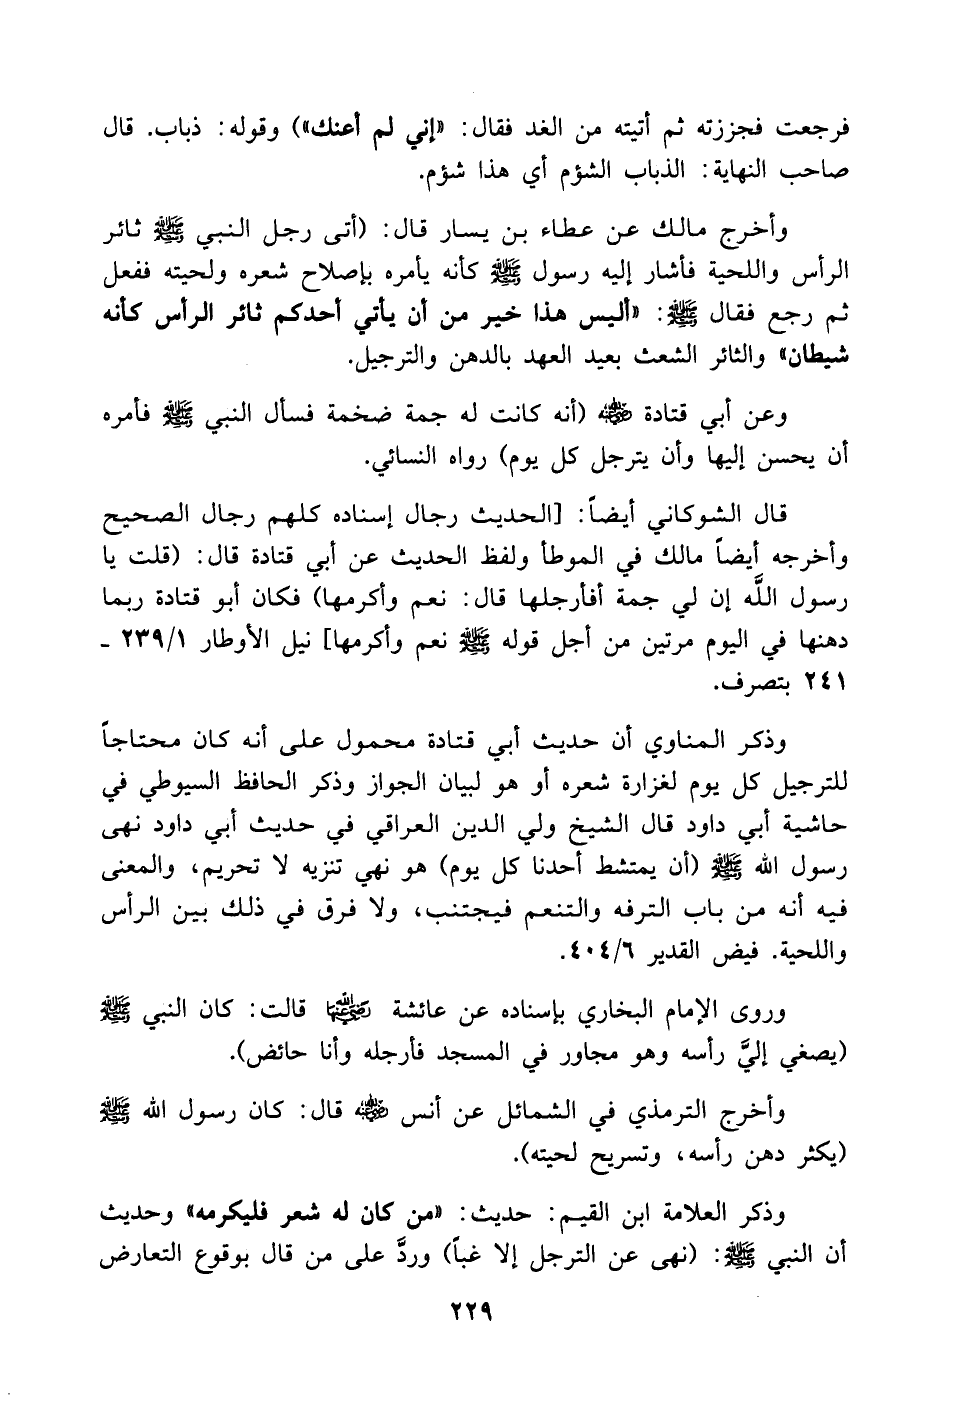 فرجعت فجززته ثم أتيته من الغد فقال: «إني لم أعنك») وقوله: ذباب. قال
صاحب النهاية: الذباب الشؤم أي هذا شؤم.
وأخرج مالك عن عطاء بن يسار قال: (أتى رجل النبي ﷺ ثائر
الرأس واللحية فأشار إليه رسول ﷺ كأنه يأمره بإصلاح شعره ولحيته ففعل
ثم رجع فقال ﷺ: «أليس هذا خير من أن يأتي أحدكم ثائر الرأس كأنه
شيطان» والثائر الشعث بعيد العهد بالدهن والترجيل.
وعن أبي قتادة رضي الله عنه (أنه كانت له جمة ضخمة فسأل النبي ﷺ فأمره
أن يحسن إليها وأن يترجل كل يوم) رواه النسائي.
قال الشوكاني أيضاً: [الحديث رجال إسناده كلهم رجال الصحيح
وأخرجه أيضاً مالك في الموطأ ولفظ الحديث عن أبي قتادة قال: (قلت يا
رسول اللَّه إن لي جمة أفأرجلها قال: نعم وأكرمها) فكان أبو قتادة ربما
دهنها في اليوم مرتين من أجل قوله ﷺ نعم وأكرمها] نيل الأوطار ٢٣٩/١ ـ
٢٤١ بتصرف.
وذكر المناوي أن حديث أبي قتادة محمول على أنه كان محتاجاً
للترجيل كل يوم لغزارة شعره أو هو لبيان الجواز وذكر الحافظ السيوطي في
حاشية أبي داود قال الشيخ ولي الدين العراقي في حديث أبي داود نهى
رسول الله ﷺ (أن يمتشط أحدنا كل يوم) هو نهي تنزيه لا تحريم، والمعنى
فيه أنه من باب الترفه والتنعم فيجتنب، ولا فرق في ذلك بين الرأس
واللحية. فيض القدير ٤٠٤/٦.
وروى الإمام البخاري بإسناده عن عائشة رضي الله عنها قالت: كان النبي ﷺ
(يصغي إليَّ رأسه وهو مجاور في المسجد فأرجله وأنا حائض).
وأخرج الترمذي في الشمائل عن أنس رضي الله عنه قال: كان رسول الله ﷺ
(يكثر دهن رأسه، وتسريح لحيته).
وذكر العلامة ابن القيم: حديث: «من كان له شعر فليكرمه» وحديث
أن النبي ﷺ: (نهى عن الترجل إلا غباً) وردَّ على من قال بوقوع التعارض
٢٢٩